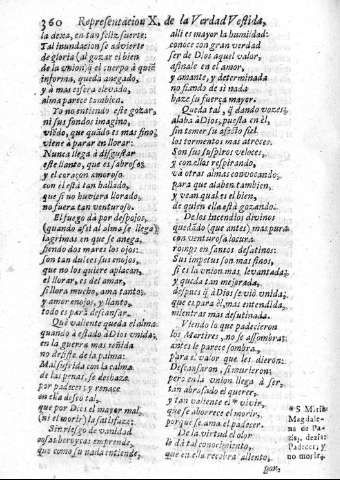 360 Representacion X. de la Verdad Vestida,
la dexa, en tan feliz suerte:
Tal inundacion se advierte
de gloria (al gozar el bien
de la union, q̃ el cuerpo à quiẽ
informa, queda anegado,
y à mas esfera elevado,
alma parece tambien.
Yo no entiendo este gozar,
ni sus fondos imagino,
viẽdo, que quãdo es mas fino,
viene à parar en llorar:
Nunca llega à disgustar
este llanto, que es sabroso,
y el coraçon amoroso
con el està tan hallado,
que si no huviera llorado,
no fuera tan venturoso.
El fuego dà por despojos,
(quando assi al alma se llega)
lagrimas en que se anega,
siendo dos mares los ojos:
son tan dulces sus enojos,
que no los quiere aplacan,
el llorar, es del amar,
si llora mucho, ama tanto;
y amor enojos, y llanto,
todo es para descansar.
Què valiente queda el alma
quando à estado à Dios unida;
en la guerra mas reñida
no desiste de la palma:
Mal sufrida con la calma
de las penas, se deshaze
por padecer; y renace
en ella deseo tal,
que por Dios el mayor mal,
(ni el morir) la satisface:
Sin riesgo de vanidad
cosas heroycas emprende,
que como su nada entiende,
alli es mayor la humildad:
conoce con gran verdad
ser de Dios aquel valor,
afinale en el amor,
y amante, y determinada
no fiando de si nada
haze su fuerça mayor.
Queda tal, q̃ dando vozes,
alaba à Dios, puesta en èl,
sin temer su afecto fiel
los tormentos mas atroces.
Son sus suspiros veloces,
y con ellos respirando,
và otras almas convocando,
para que alaben tambien,
y vean qual es el bien,
de quien ella està gozando.
De los incendios divinos
quedãdo (que antes) mas pura
con venturosa locura
rompe en santos desatinos:
Sus impetus son mas finos,
si es la union mas levantada;
y queda tan mejorada,
despues q̃ à Dios se viò vnida,
que es para èl, mas entendida,
mientras mas desatinada.
Viendo lo que padecieron
los Martires, no se assombra;
antes le parece sombra,
para el valor que les dieron:
Descansaron, si murieron;
pero en la union llega à ser,
tan abrasado el querer,
y tan valiente el * vivir,
que se aborrece el morir,
porque se ama el padecer.
De la virtud el olor
le dà tal conocimiento,
que en ella recobra aliento,
par,
* S. Maria
Magdale-
na de Pa-
zis, dezia:
Padecer, y
no morir.